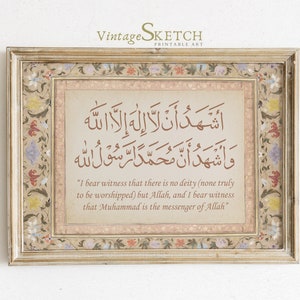 VintageSKETCH
PRINTABLE ART
أَشْهَدُ أَنْ لَا إِلٰهَ إِلَّا اللّٰهُ
وَأَشْهَدُ أَنَّ مُحَمَّدًا رَسُولُ اللّٰهِ
"I bear witness that there is no deity (none truly
to be worshipped) but Allah, and I bear witness
that Muhammad is the messenger of Allah"